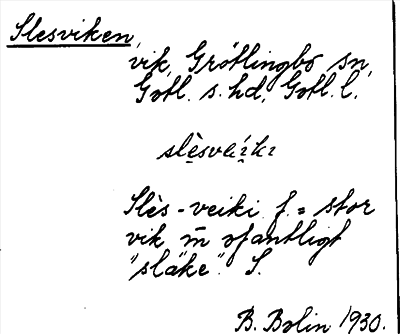 Slesviken,
vik, Grötlingbo sn,
Gotl. s. hd, Gotl. l.
Slès-veiki f. = stor
vik m̄ ofantligt
"släke". S.
B. Bolin 1930.